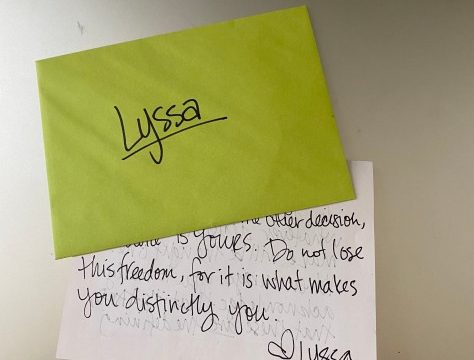 Lyssa
other decision,
is yours. Do not lose
this freedom, for it is what makes
you distinctly you.
♡Lyssa